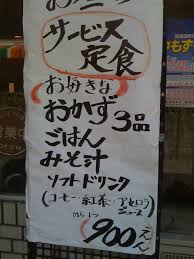 サービス
定食
お好きな
おかず3品
ごはん
みそ汁
ソフトドリンク
(コーヒー・紅茶・アセロラ
ジュース)
から1つ
900えん